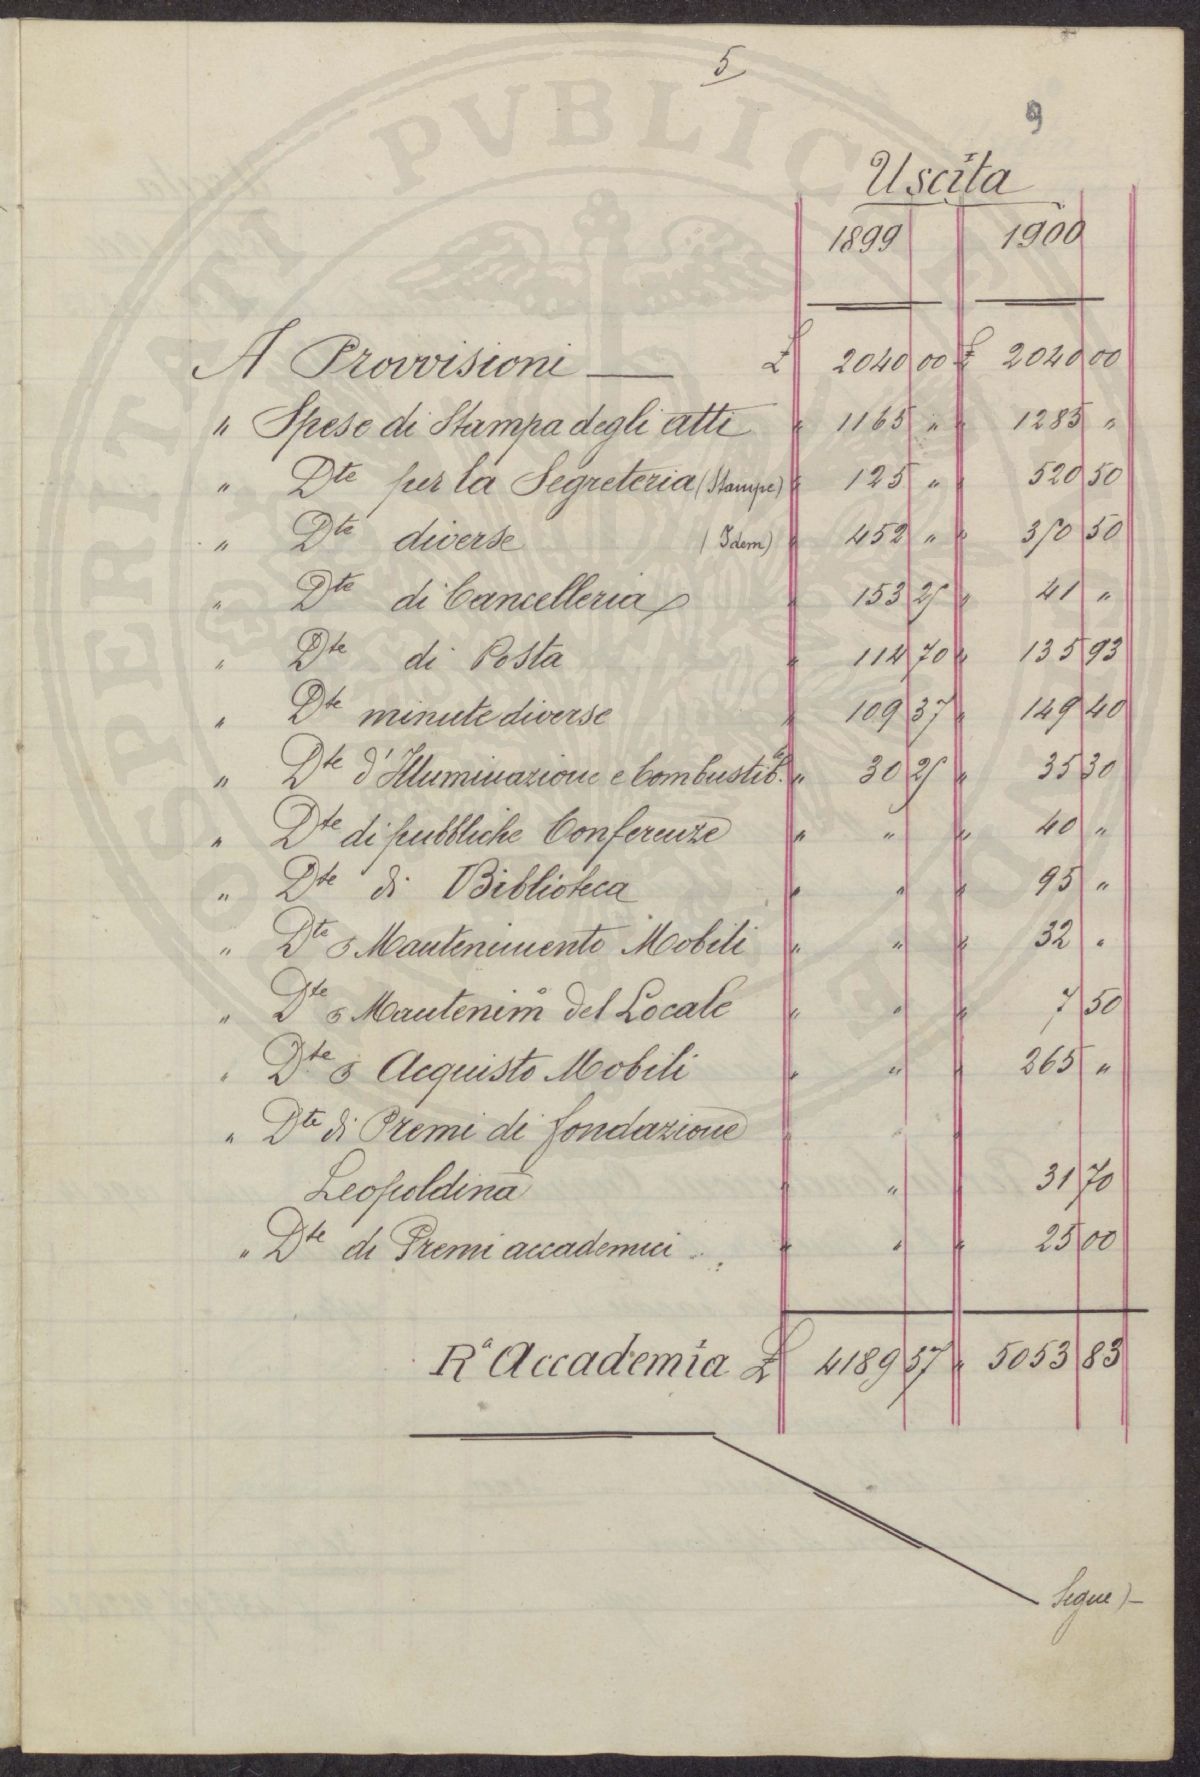 5
9
Uscita
1899 1900
A Provvisioni £ 2040 00 £ 2040 00
" Spese di Stampa degli atti " 1165 " " 1285 "
" Dte per la Segreteria (Stampe) " 125 " " 520 50
" Dte diverse (Idem) " 452 " " 350 50
" Dte di Cancelleria " 153 25 " 41 "
" Dte di Posta " 114 70 " 135 93
" Dte minute diverse " 109 37 " 149 40
" Dte d'Illuminazione e Combustib.le " 30 25 " 35 30
" Dte di pubbliche Conferenze " " " 40 "
" Dte di Biblioteca " " " 95 "
" Dte Mantenimento Mobili " " " 32 "
" Dte Mantenimo del Locale " " " 7 50
" Dte Acquisto Mobili " " " 265 "
" Dte di Premi di fondazione " " "
Leopoldina " " " 31 70
" Dte di Premi accademici " " " 25 00
Ra Accademia £ 4189 57 " 5053 83
Segue)-
PROSPERITATI PVBLICAE